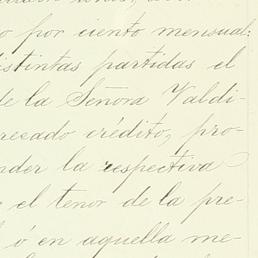 o por ciento mensual:
istintas partidas el
de la Señora Valdi-
recado crédito, pro-
nder la respectiva
el tenor de la pre-
ó en aquella me-